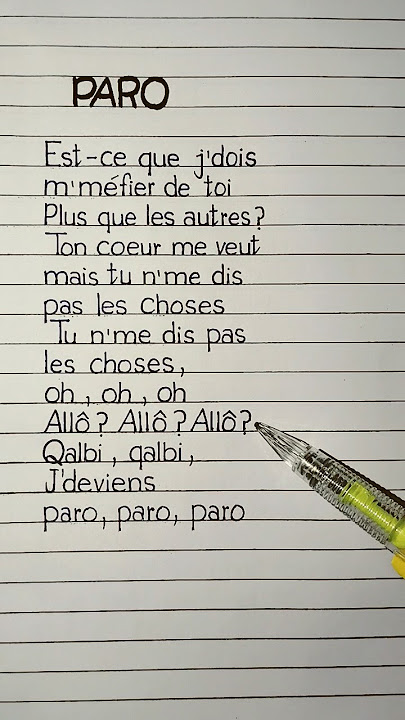 PARO
Est-ce que j'dois
m'méfier de toi
Plus que les autres?
Ton coeur me veut
mais tu n'me dis
pas les choses
Tu n'me dis pas
les choses,
oh, oh, oh
Allô? Allô? Allô?
Qalbi, qalbi,
J'deviens
paro, paro, paro